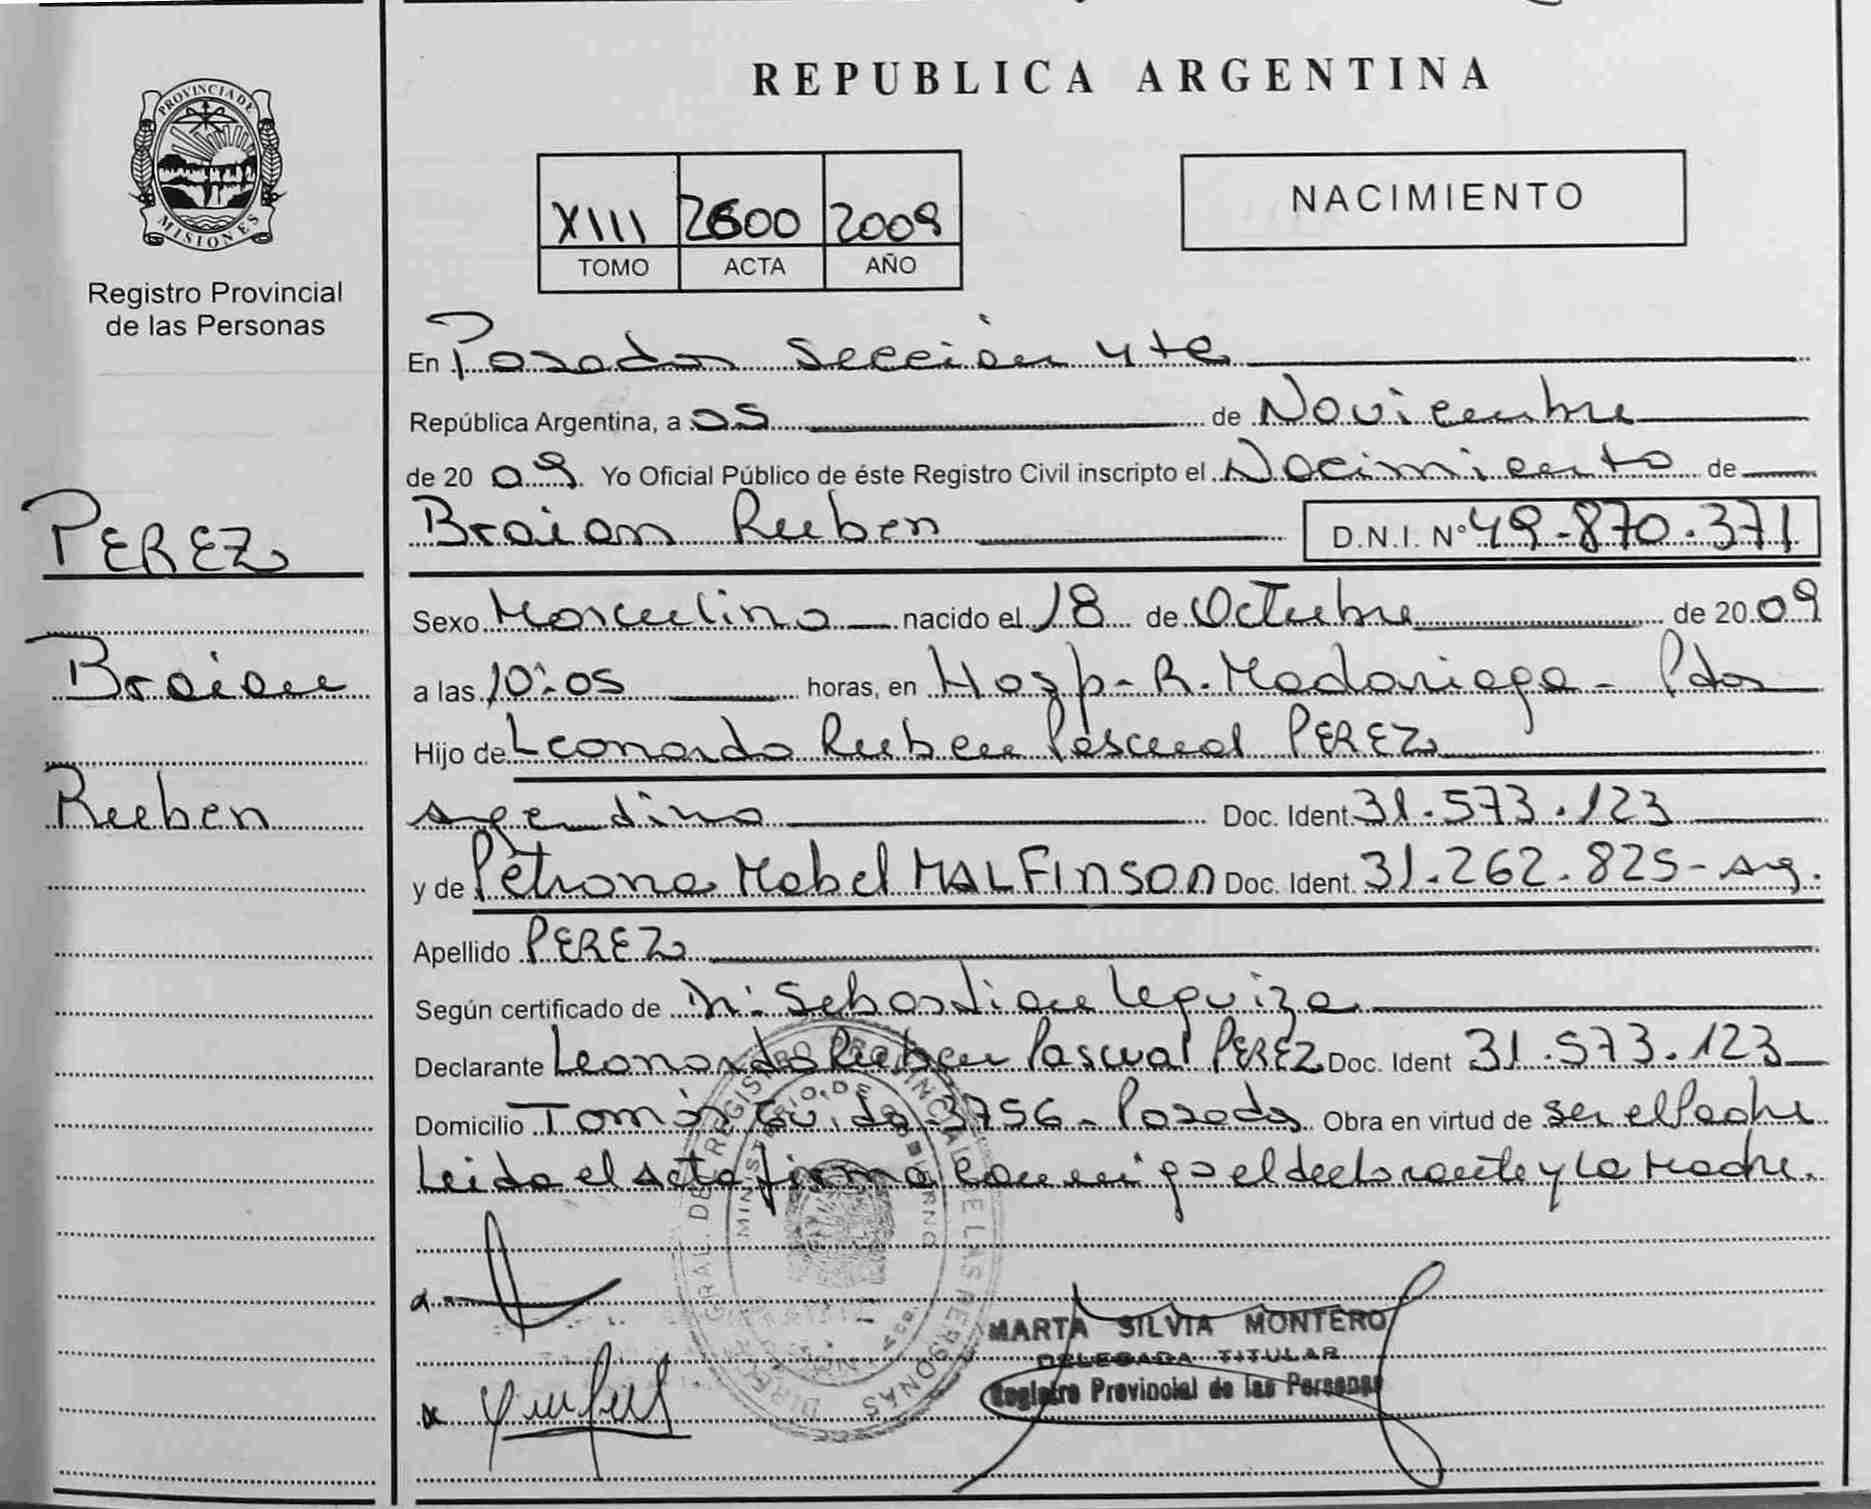 PROVINCIA DE
MISIONES
Registro Provincial
de las Personas
PEREZ
Braian
Ruben
REPUBLICA ARGENTINA
XIII 2600 2009
TOMO ACTA AÑO
NACIMIENTO
En Posadas Sección 4ta
República Argentina, a 05 de Noviembre
de 2009. Yo Oficial Público de éste Registro Civil inscripto el Nacimiento de
Braian Ruben D.N.I. Nº 49-870.371
Sexo Masculino nacido el 18 de Octubre de 2009
a las 10:05 horas, en Hosp- R. Madariaga - Pdas
Hijo de Leonardo Ruben Pascual PEREZ
argentino Doc. Ident. 31.573.123
y de Petrona Mabel MALFINSON Doc. Ident. 31.262.825- arg.
Apellido PEREZ
Según certificado de Dr: Sebastian Leguiza
Declarante Leonardo Ruben Pascual PEREZ Doc. Ident 31.573.123
Domicilio Tomás Guido 3756 - Posadas Obra en virtud de ser el Padre
Leida el acta firma conmigo el declarante y la Madre.
DIREC. GRAL. DE REGISTRO PROVINCIAL DE LAS PERSONAS
MINISTERIO DE GOBIERNO
MARTA SILVIA MONTERO
DELEGADA TITULAR
Registro Provincial de las Personas